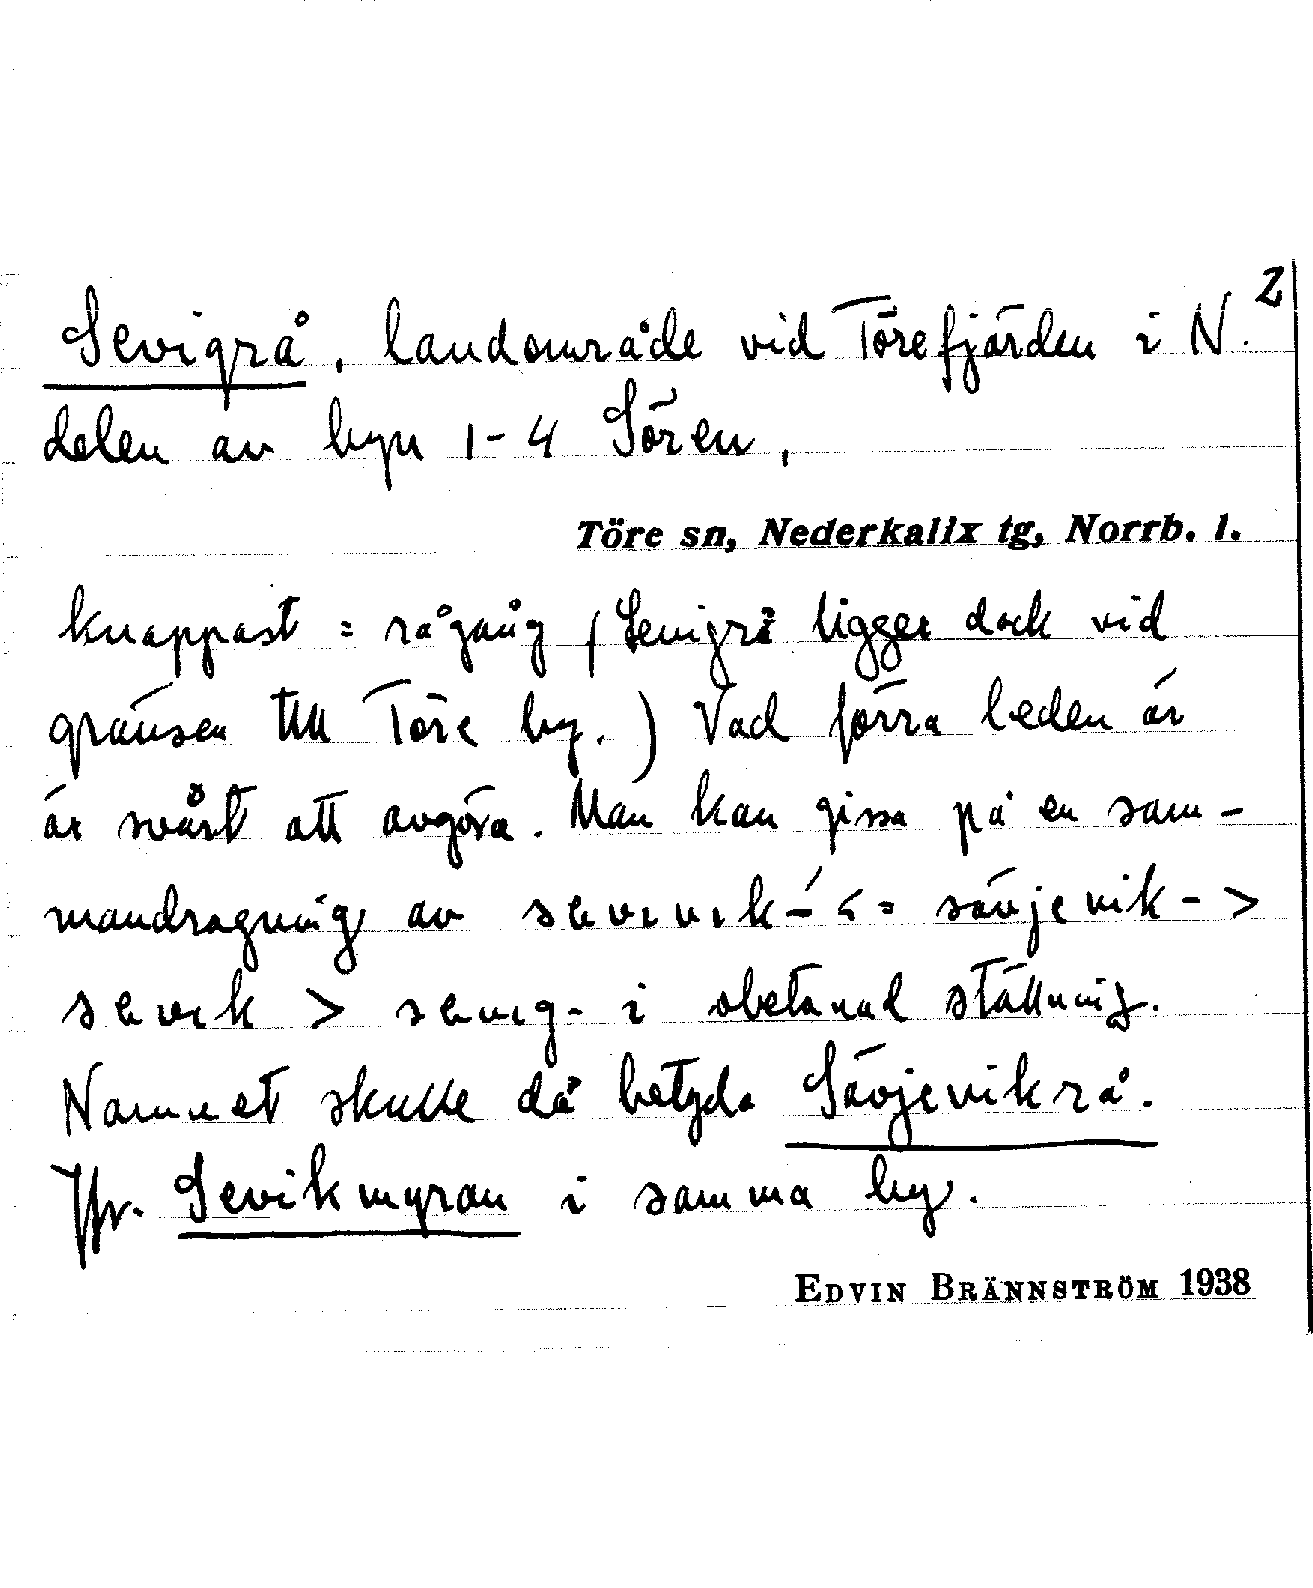 2
Sevigrå, landområde vid Törefjärden i N.
delen av byn 1-4 Sören,
Töre sn, Nederkalix tg, Norrb. l.
knappast = rågång (Sevigrå ligger dock vid
gränsen till Töre by.) Vad förra leden är
är svårt att avgöra. Man kan gissa på en sam-
mandragning av sevivik- < = sävjevik- >
sevik > sevig- i obetonad ställning.
Namnet skulle då betyda Sävjevikrå.
Jfr. Sevikmyran i samma by.
EDVIN BRÄNNSTRÖM 1938